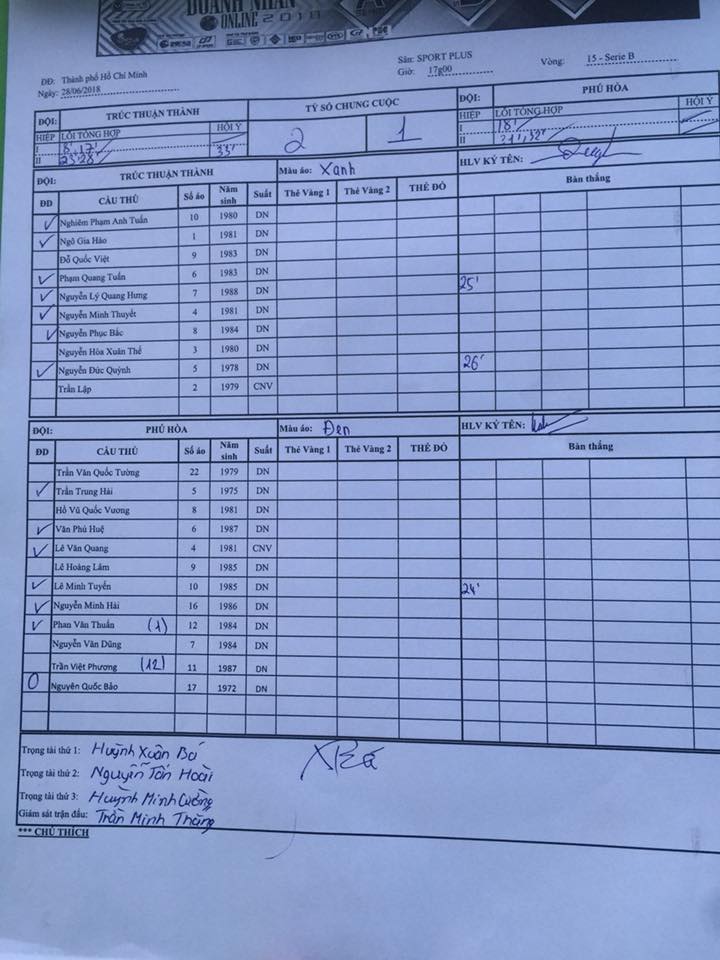 DOANH NHÂN
ONLINE 2018
ĐĐ: Thành phố Hồ Chí Minh
Ngày: 28/06/2018
Sân: SPORT PLUS
Giờ: 17g00
Vòng: 15 - Serie B
ĐỘI: TRÚC THUẬN THÀNH TỶ SỐ CHUNG CUỘC ĐỘI: PHÚ HÒA
HIỆP LỖI TỔNG HỢP HỘI Ý 2 1 HIỆP LỖI TỔNG HỢP HỘI Ý
I 8' 17' I 18'
II 23' 28' 33' II
ĐỘI: TRÚC THUẬN THÀNH Màu áo: Xanh HLV KÝ TÊN:
ĐD CẦU THỦ Số áo Năm sinh Suất Thẻ Vàng 1 Thẻ Vàng 2 THẺ ĐỎ Bàn thắng
Nghiêm Phạm Anh Tuấn 10 1980 DN
Ngô Gia Hào 1 1981 DN
Đỗ Quốc Việt 9 1983 DN
Phạm Quang Tuấn 6 1983 DN 25'
Nguyễn Lý Quang Hưng 7 1988 DN
Nguyễn Minh Thuyết 4 1981 DN
Nguyễn Phục Bắc 8 1984 DN
Nguyễn Hòa Xuân Thế 3 1980 DN
Nguyễn Đức Quỳnh 5 1978 DN 26'
Trần Lập 2 1979 CNV
ĐỘI: PHÚ HÒA Màu áo: Đen HLV KÝ TÊN:
ĐD CẦU THỦ Số áo Năm sinh Suất Thẻ Vàng 1 Thẻ Vàng 2 THẺ ĐỎ Bàn thắng
Trần Văn Quốc Tường 22 1979 DN
Trần Trung Hải 5 1975 DN
Hồ Vũ Quốc Vương 8 1981 DN
Văn Phú Huệ 6 1987 DN
Lê Văn Quang 4 1981 CNV
Lê Hoàng Lâm 9 1985 DN
Lê Minh Tuyển 10 1985 DN 24'
Nguyễn Minh Hải 16 1986 DN
Phan Văn Thuấn (1) 12 1984 DN
Nguyễn Văn Dũng 7 1984 DN
Trần Việt Phương (12) 11 1987 DN
0 Nguyên Quốc Bảo 17 1972 DN
Trọng tài thứ 1: Huỳnh Xuân Bá
Trọng tài thứ 2: Nguyễn Tấn Hoài
Trọng tài thứ 3: Huỳnh Minh Cường
Giám sát trận đấu: Trần Minh Thắng
*** CHÚ THÍCH